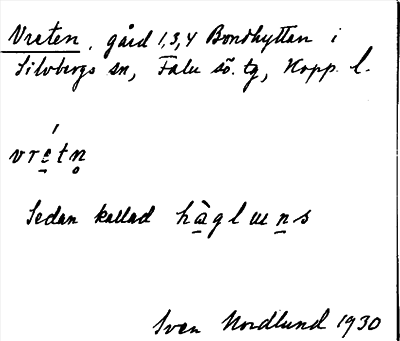 Vreten, gård 1,3,4 Bondhyttan i
Silvbergs sn, Falu sö. tg, Kopp. l.
vrétn̥
Sedan kallad hàgluns
Sven Nordlund 1930